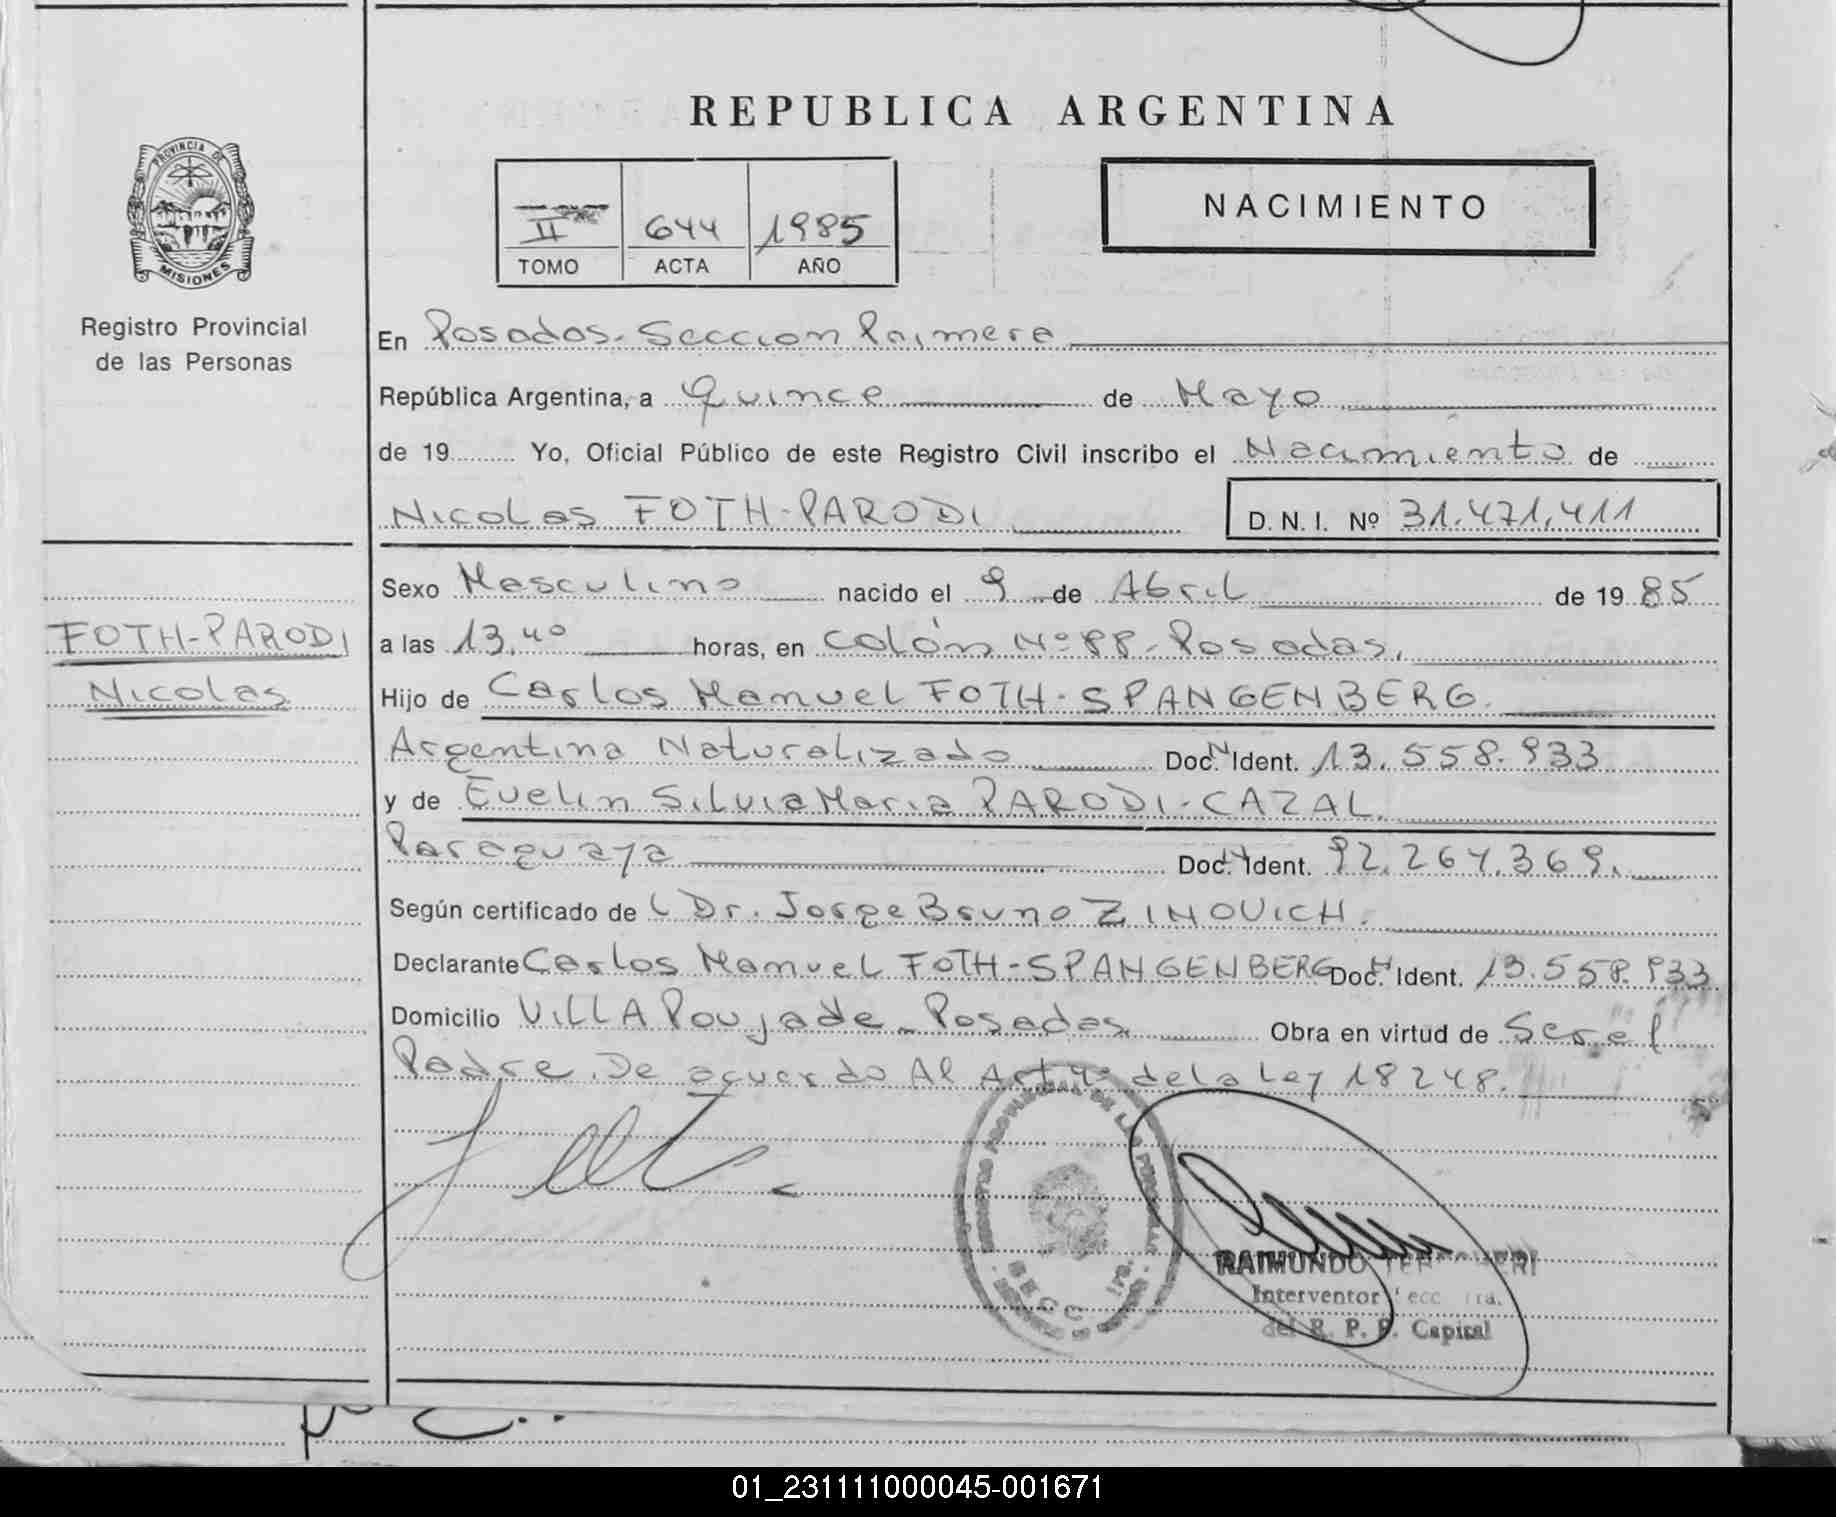 REPUBLICA ARGENTINA
PROVINCIA DE
MISIONES
Registro Provincial
de las Personas
II 644 1985
TOMO ACTA AÑO
NACIMIENTO
En Posadas. Seccion Primera
República Argentina, a Quince de Mayo
de 19 Yo, Oficial Público de este Registro Civil inscribo el Nacimiento de
Nicolas FOTH-PARODI D.N.I. Nº 31.471.411
FOTH-PARODI
Nicolas
Sexo Masculino nacido el 9 de Abril de 19 85
a las 13,40 horas, en Colón Nº 88 - Posadas.
Hijo de Carlos Manuel FOTH-SPANGENBERG.
Argentina Naturalizado Doc. N. Ident. 13.558.933
y de Evelin Silvia Maria PARODI-CAZAL.
Paraguaya Doc. N. Ident. 92.264.369.
Según certificado de Dr. Jorge Bruno ZINOVICH.
Declarante Carlos Manuel FOTH-SPANGENBERG Doc. N. Ident. 13.558.933
Domicilio VILLA Poujade - Posadas Obra en virtud de Ser el
Padre. De acuerdo Al Art 4º de la Ley 18248.
DE LAS PERSONAS
SECC. 1ra.
RAIMUNDO
Interventor Secc. 1ra.
del R. P. P. Capital
01_231111000045-001671